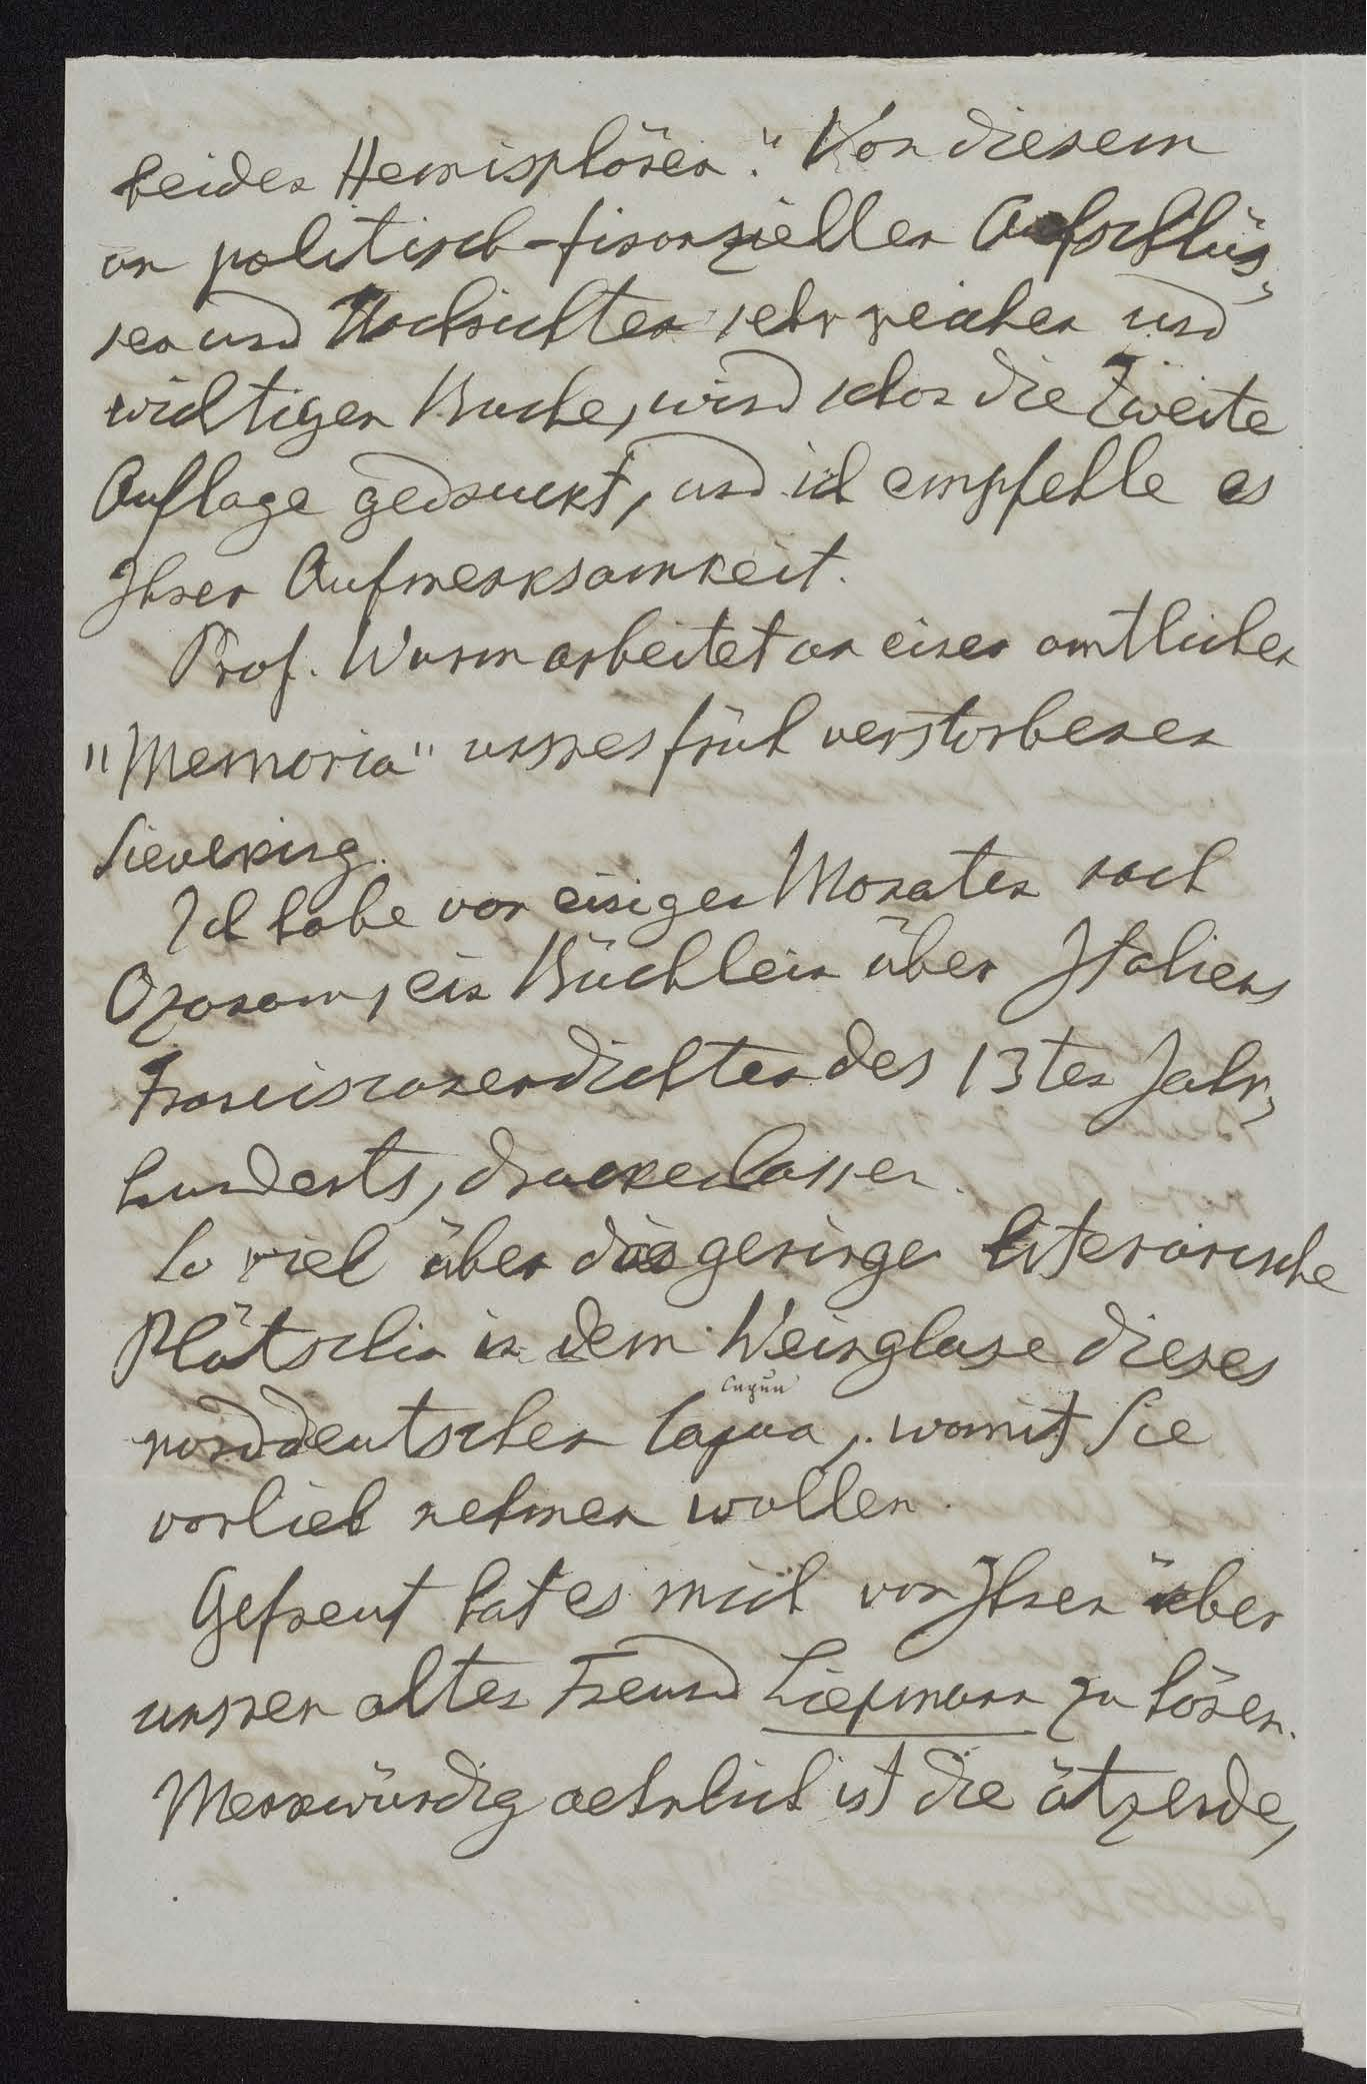 beider Hemisphären." Von diesem
an politisch-finanziellen Aufschlüs-
sen und Nachrichten sehr reichen und
wichtigen Buche, wird schon die Zweite
Auflage gedruckt, und ich empfehle es
Ihrer Aufmerksamkeit.
Prof. Wurm arbeitet an einer amtlichen
"Memoria" unsres früh verstorbenen
Sieveking.
Ich habe vor einigen Monaten nach
Ozanam, ein Büchlein über Italiens
Franciscanerdichter des 13ten Jahr-
hunderts, drucken lassen.
So viel über das geringe literarische
Plätschern in dem Weinglase dieses
Capua
norddeutschen Capua, womit Sie
vorlieb nehmen wollen.
Gefreut hat es mich von Ihnen über
unsren alten Freund Liepmann zu hören.
Merkwürdig aehnlich ist die ätzende,